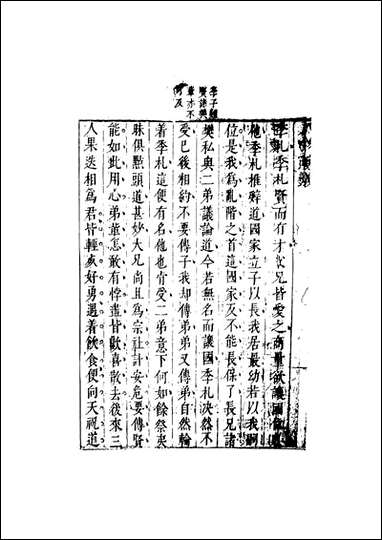 季子雖
賢諸樊
輩亦不
可及
季札賢而有才兄皆愛之商量欲讓國
他季札推辭道國家立子以長我居最幼若以我嗣
位是我為亂階之首這國家反不能長保了長兄諸
樊私與二弟議論道今若無名而讓國季札決然不
受已後相約不要傳子我却傳弟弟又傳弟自然輪
着季札這便有名他也肯受二弟意下何如餘祭夷
昧俱點頭道甚妙大兄尚且為宗社計安危要傳賢
能如此用心弟輩怎敢有悖違皆歡喜散去後來三
人果迭相為君皆輕死好勇遇着飲食便向天祝道